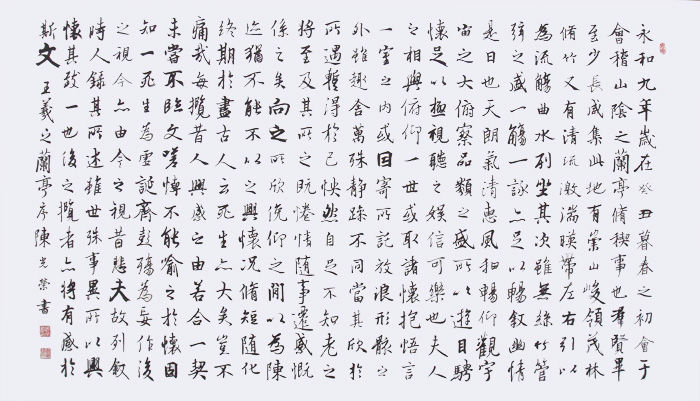 永和九年歲在癸丑暮春之初會于
會稽山陰之蘭亭脩稧事也羣賢畢
至少長咸集此地有崇山峻領茂林
脩竹又有清流激湍暎帶左右引以
為流觴曲水列坐其次雖無絲竹管
弦之盛一觴一詠亦足以暢敘幽情
是日也天朗氣清惠風和暢仰觀宇
宙之大俯察品類之盛所以遊目騁
懷足以極視聽之娛信可樂也夫人
之相與俯仰一世或取諸懷抱悟言
一室之內或因寄所託放浪形骸之
外雖趣舍萬殊靜躁不同當其欣於
所遇暫得於己怏然自足不知老之
將至及其所之既惓情隨事遷感慨
係之矣向之所欣俛仰之閒以為陳
迹猶不能不以之興懷況脩短隨化
終期於盡古人云死生亦大矣豈不
痛哉每攬昔人興感之由若合一契
未嘗不臨文嗟悼不能喻之於懷固
知一死生為虛誕齊彭殤為妄作後
之視今亦由今之視昔悲夫故列敘
時人錄其所述雖世殊事異所以興
懷其致一也後之攬者亦將有感於
斯文 王羲之蘭亭序陳光榮書